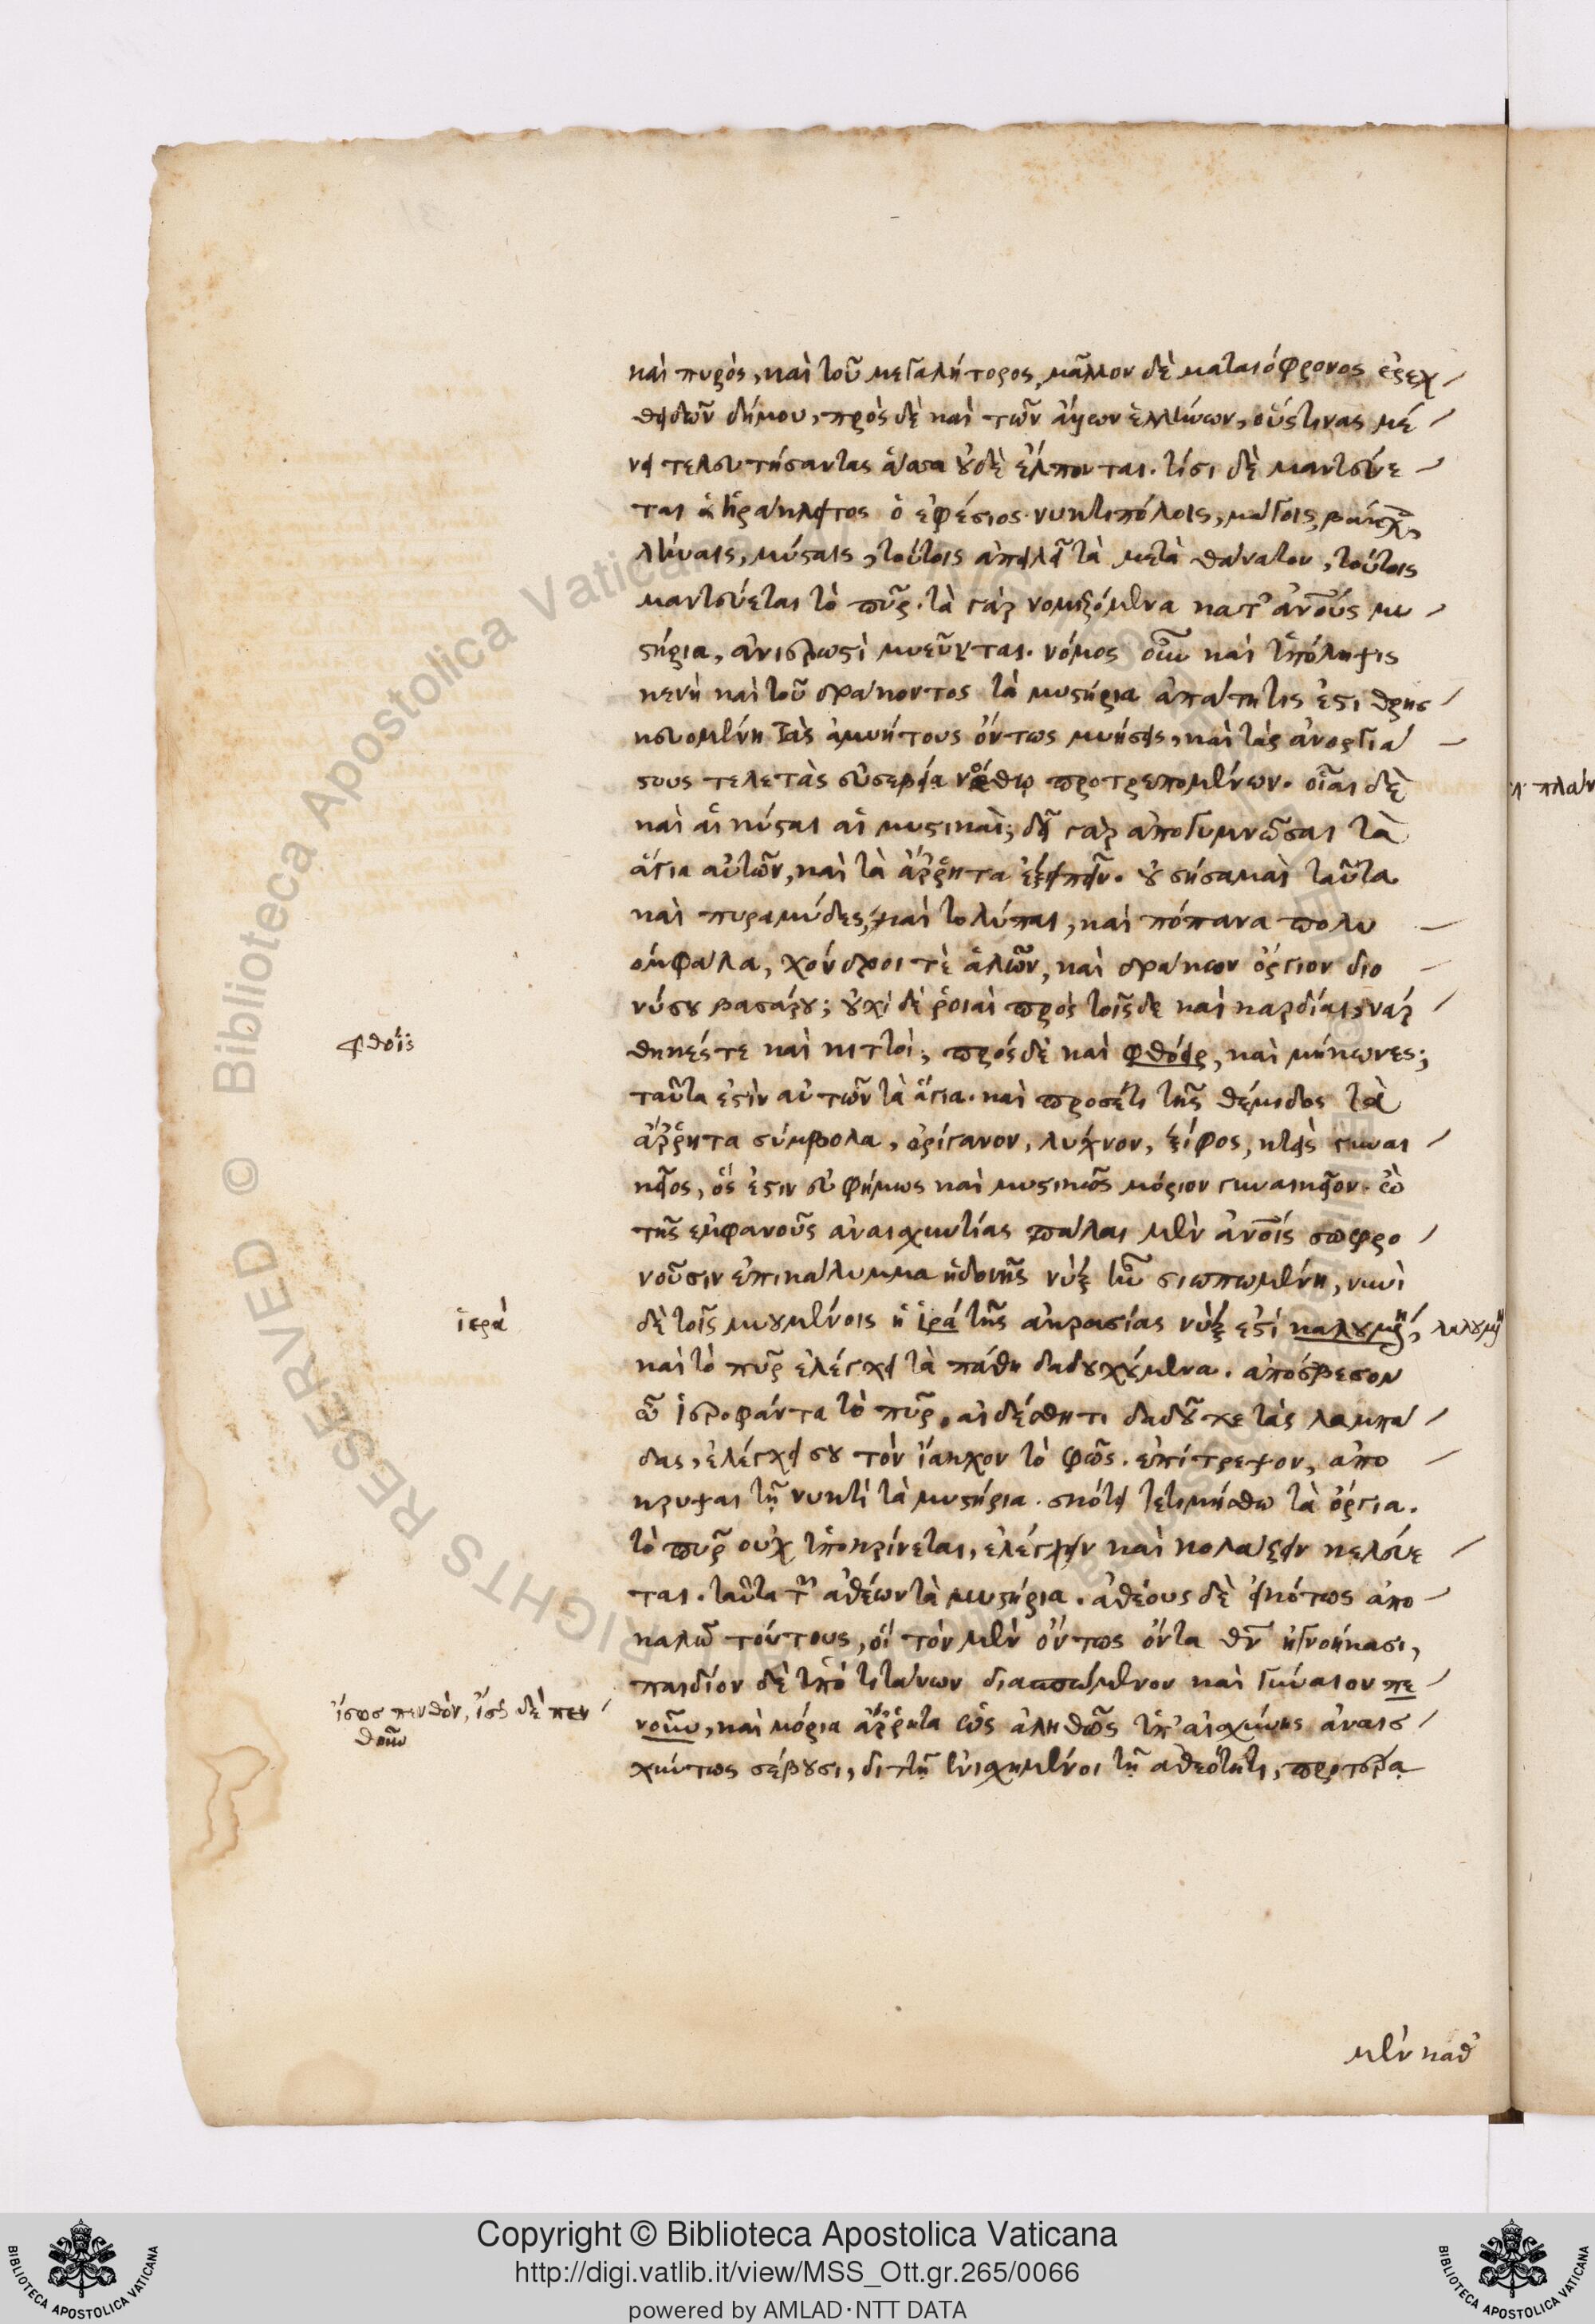 καὶ πυρὸς, καὶ τοῦ μεγαλήτορος, μᾶλλον δὲ ματαιόφρονος ἐρεχ
θειδῶν δήμου, πρὸς δὲ καὶ τῶν ἄλλων ἑλλήνων, οὕστινας μέ
νει τελευτήσαντας ἅσσα οὐδὲ ἔλπονται. τίσι δὲ μαντεύε
ται ἡράκλειτος ὁ ἐφέσιος· νυκτιπόλοις, μάγοις, βάκχοις,
λήναις, μύσταις, τούτοις ἀπειλεῖ τὰ μετὰ θάνατον, τούτοις
μαντεύεται τὸ πῦρ. τὰ γὰρ νομιζόμενα κατ' ἀνους μυ
στήρια, ἀνιερωστὶ μυεῦνται. νόμος οὖν καὶ ὑπόληψις
κενὴ καὶ τοῦ δράκοντος τὰ μυστήρια ἀπάτη τίς ἐστι θρησ
κευομένη τὰς ἀμυήτους ὄντως μυήσεις, καὶ τὰς ἀνοργιά
στους τελετὰς εὐσεβεία νόθῳ προτρεπομένων. οἷαι δὲ
καὶ αἱ κύσται αἱ μυστικαὶ; δεῖ γὰρ ἀπογυμνῶσαι τὰ
ἅγια αὐτῶν, καὶ τὰ ἄῤῥητα ἐξειπεῖν. οὐ σήσαμαὶ ταῦτα
καὶ πυραμύδες, καὶ τολύπαι, καὶ πόπανα πολυ
όμφαλα, χόνδροι τὲ ἁλῶν, καὶ δράκων ὄργιον διο
νύσου βασάρου; οὐχὶ δὲ ῥοιαὶ πρὸς τοῖσδε καὶ καρδίαι, νάρ
θηκές τε καὶ κιττοὶ; πρὸς δὲ καὶ φθόεις, καὶ μήκωνες;
φθοῖς
ταῦτα ἐστὶν αὐτῶν τὰ ἅγια. καὶ προσέτι τῆς θέμιδος τὰ
ἄῤῥητα σύμβολα, ὀρίγανον, λύχνον, ξίφος, κτεὶς γυναι
κεῖος, ὅς ἐστιν εὐφήμως καὶ μυστικῶς μόριον γυναικεῖον. ὢ
τῆς ἐμφανοῦς ἀναισχυντίας πάλαι μὲν ἀνοις σωφρο
νοῦσιν ἐπικάλυμμα ἡδονῆς νὺξ ἦν σιωπωμένη, νυνὶ
δὲ τοῖς μυουμένοις ἡ ἱρά τῆς ἀκρασίας νύξ ἐστί καλουμένη,
ἱερά
λαλουμένη
καὶ τὸ πῦρ ἐλέγχει τὰ πάθη δαδουχούμενα. ἀπόσβεσον
ὦ ἱεροφάντα τὸ πῦρ, αἰδέσθητι δαδοῦχε τὰς λαμπά
δας, ἐλέγχει σου τὸν ἴακχον τὸ φῶς. ἐπίτρεψον, ἀπο
κρυψαι τῇ νυκτὶ τὰ μυστήρια. σκότει τετιμήσθω τὰ ὄργια.
τὸ πῦρ οὐχ ὑποκρίνεται, ἐλέγχειν καὶ κολάζειν κελεύε
ται. ταῦτα τῶν ἀθέων τὰ μυστήρια. ἀθέους δὲ εἰκότως ἀπο
καλῶ τούτους, οἳ τὸν μὲν ὄντως ὄντα θν ἠγνοήκασι,
παιδίον δὲ ὑπὸ τιτάνων διασπώμενον καὶ γύναιον πε
ἴσως πενθὸν, ἴσως δὲ πεν
θοῦν
νοῦν, καὶ μόρια ἄῤῥητα ὡς ἀληθῶς ὑπ' αἰσχύνης ἀναισ
χύντως σέβουσι, διττῇ ἐνισχημένοι τῇ ἀθεότητι, προτέρᾳ
μὲν καθ'
πλάν
Copyright © Biblioteca Apostolica Vaticana
http://digi.vatlib.it/view/MSS_Ott.gr.265/0066
powered by AMLAD·NTT DATA